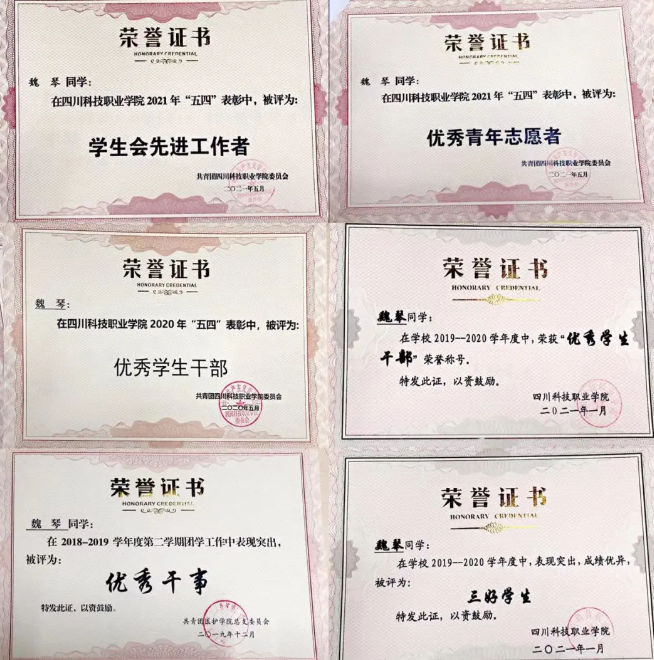 荣誉证书
HONORARY CREDENTIAL
魏 琴 同学：
在四川科技职业学院 2021 年“五四”表彰中，被评为：
学生会先进工作者
共青团四川科技职业学院委员会
二〇二一年五月
荣誉证书
HONORARY CREDENTIAL
魏 琴 同学：
在四川科技职业学院 2021 年“五四”表彰中，被评为：
优秀青年志愿者
共青团四川科技职业学院委员会
二〇二一年五月
荣誉证书
HONORARY CREDENTIAL
魏 琴：
在四川科技职业学院 2020 年“五四”表彰中，被评为：
优秀学生干部
共青团四川科技职业学院委员会
二〇二〇年五月
荣誉证书
HONORARY CREDENTIAL
魏琴同学：
在学校 2019--2020 学年度中，荣获“优秀学生
干部”荣誉称号。
特发此证，以资鼓励。
四川科技职业学院
二〇二一年一月
荣誉证书
HONORARY CREDENTIAL
魏 琴 同学：
在 2018-2019 学年度第二学期团学工作中表现突出，
被评为：
优秀干事
特发此证，以资鼓励。
共青团医护学院总支委员会
二〇一九年十二月
荣誉证书
HONORARY CREDENTIAL
魏琴同学：
在学校 2019--2020 学年度中，表现突出，成绩优异，
被评为：
三好学生
特发此证，以资鼓励。
四川科技职业学院
二〇二一年一月